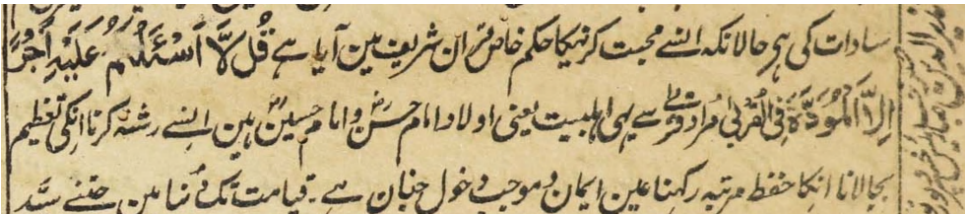 سادات کی ہی حالانکہ انسے محبت کرنیکا حکم خاص قرآن شریف مین آیا ہے قُل لَّا اَسْئَلُکُمْ عَلَیْہِ اَجْرًا
اِلَّا الْمَوَدَّۃَ فِی الْقُرْبٰی مراد قربے سے یہی اہلبیت یعنی اولاد امام حسنؓ و امام حسینؓ ہین انسے رشتہ کرنا انکی تعظیم
بجالانا انکا حفظ مرتبہ رکھنا عین ایمان و موجب دخول جنان ہے ۔ قیامت تک دنیا مین جتنے سید